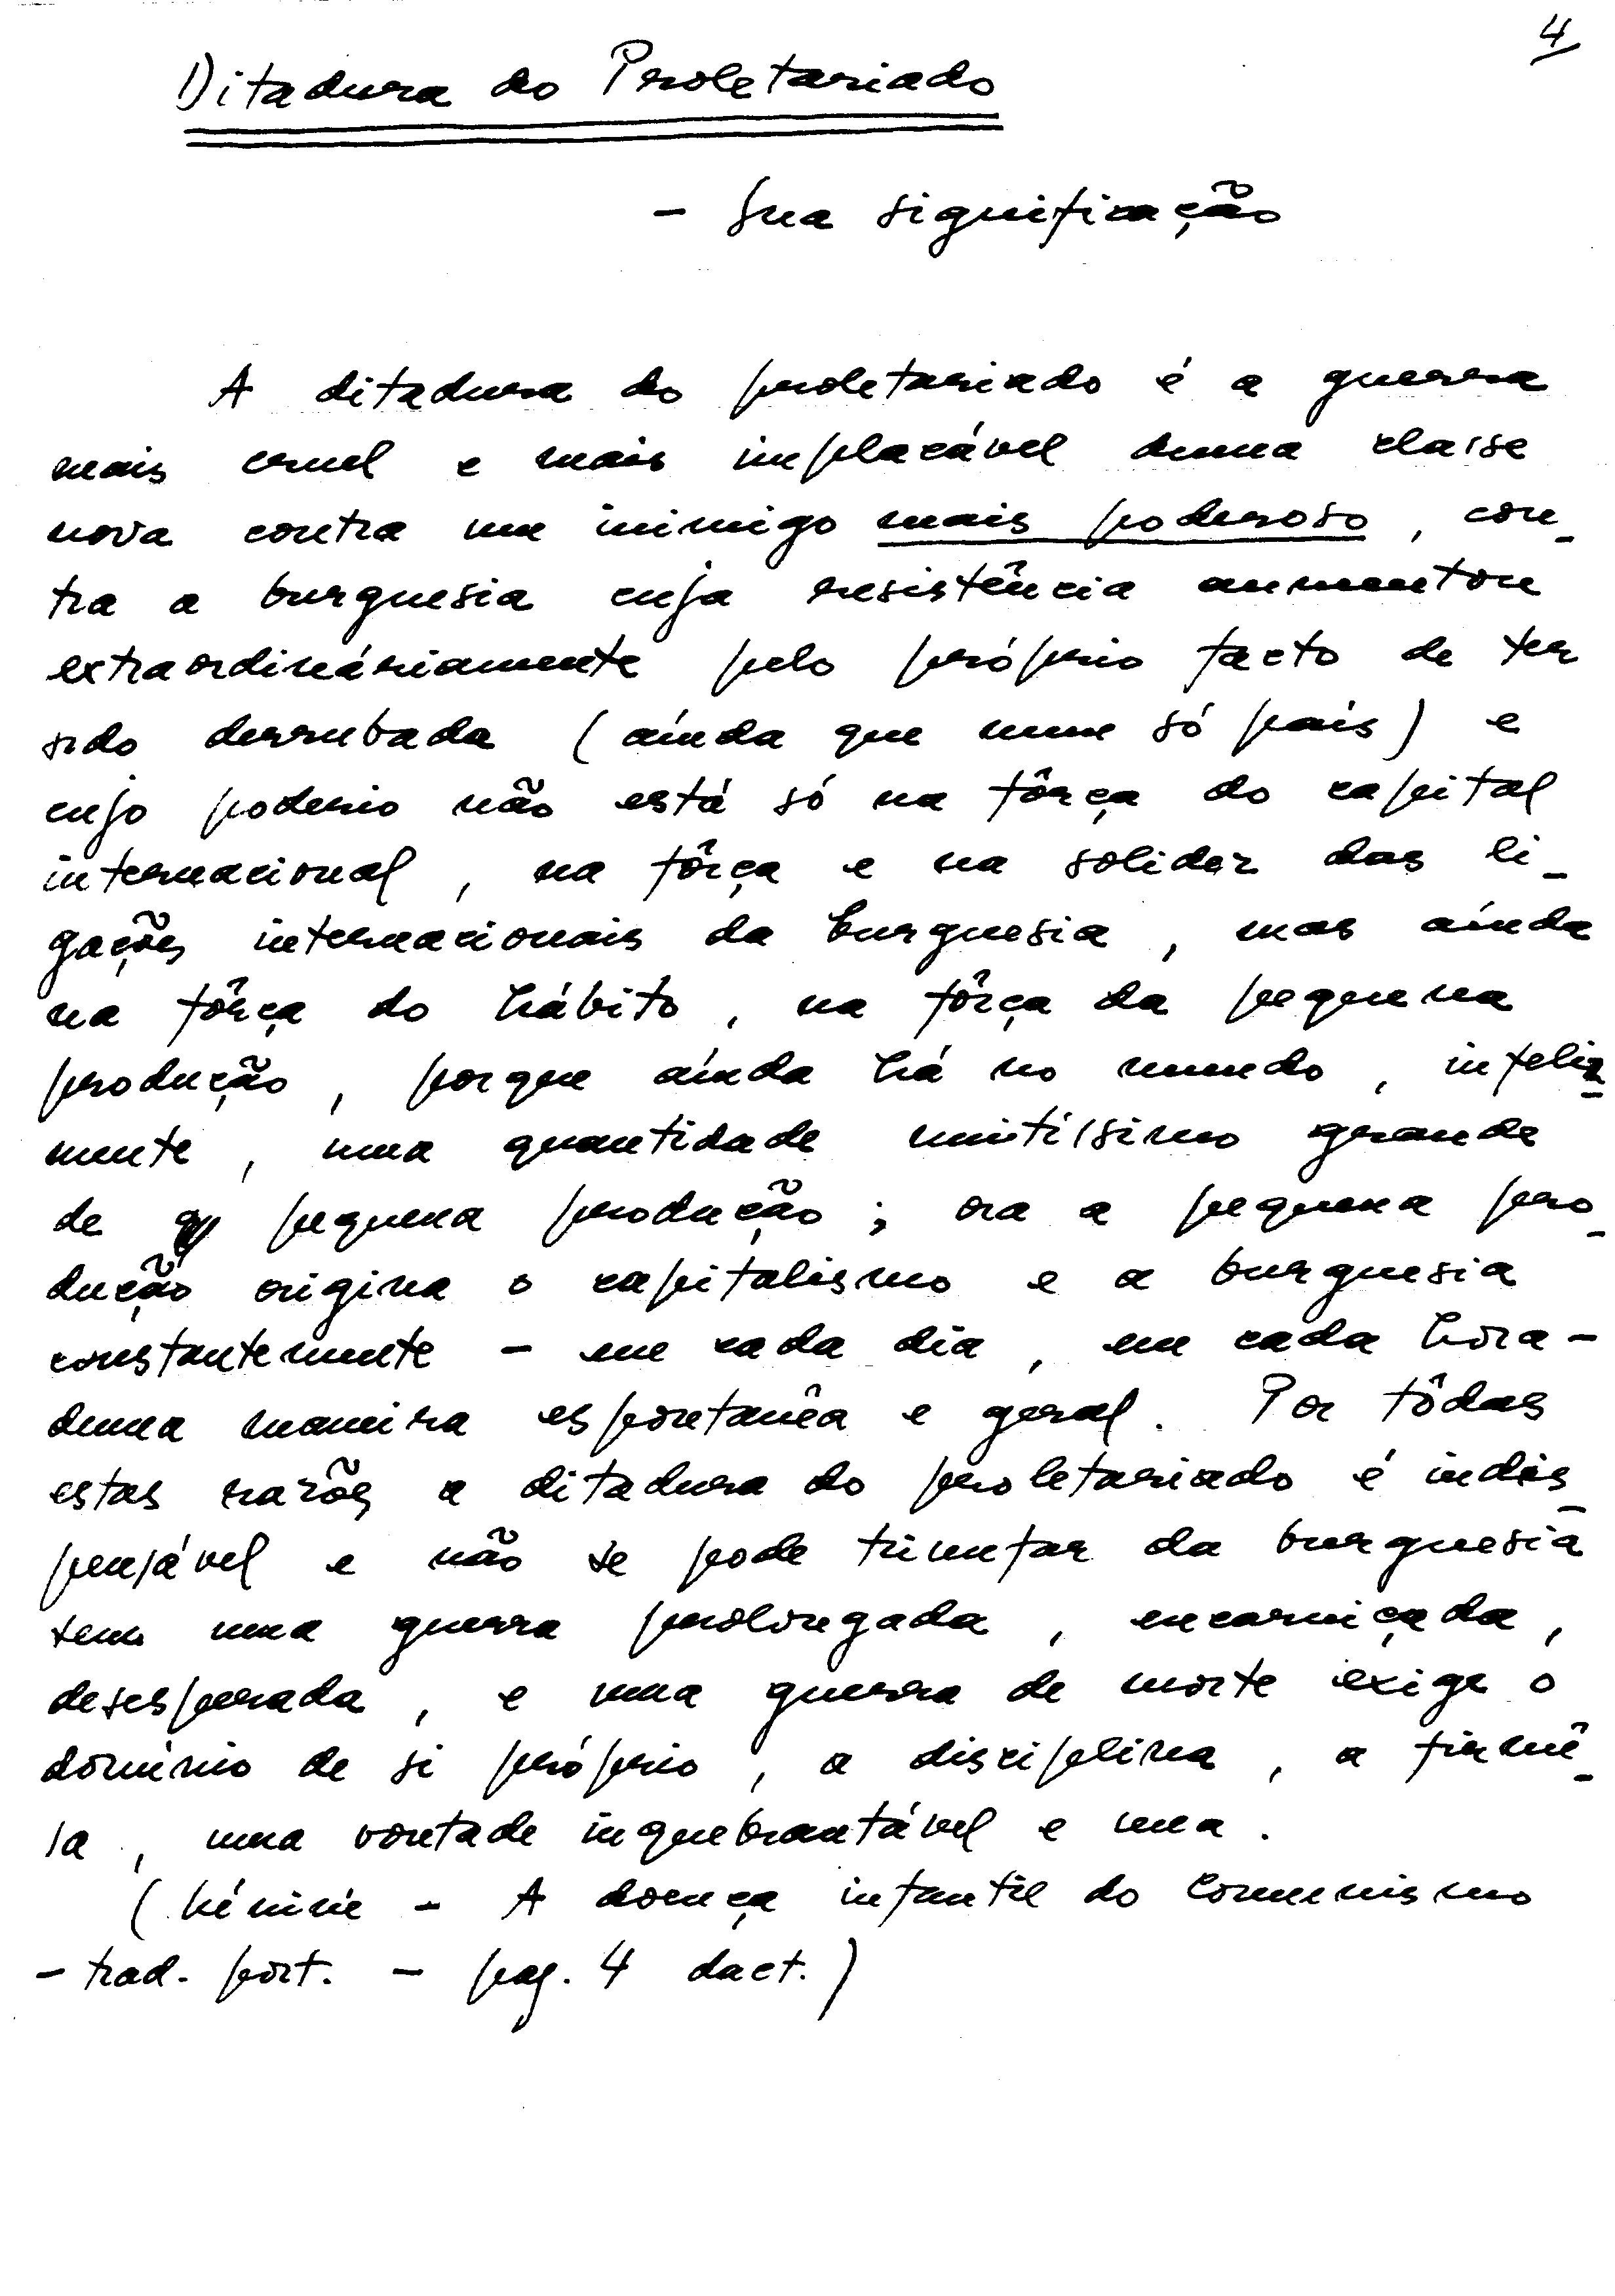 4
Ditadura do Proletariado
- Sua significação
A ditadura do proletariado é a guerra
mais cruel e mais implacável duma classe
nova contra um inimigo mais poderoso, con-
tra a burguesia cuja resistência aumentou
extraordinàriamente pelo próprio facto de ter
sido derrubada (aínda que num só país) e
cujo poderio não está só na fôrça do capital
internacional, na fôrça e na solidez das li-
gações internacionais da burguesia, mas aínda
na fôrça do hábito, na fôrça da pequena
produção, porque aínda há no mundo, infeliz-
mente, uma quantidade muitíssimo grande
de pequena produção; ora a pequena pro-
dução origina o capitalismo e a burguesia
constantemente - em cada dia, em cada hora -
duma maneira espontanêa e geral. Por tôdas
estas razões a ditadura do proletariado é indis-
pensável e não se pode triunfar da burguesia
sem uma guerra prolongada, encarniçada,
desesperada, e uma guerra de morte exige o
domínio de si próprio, a disciplina, a firmê-
sa, uma vontade inquebrantável e una.
(Lénine - A doença infantil do Comunismo
- trad. port. - pag. 4 dact.)